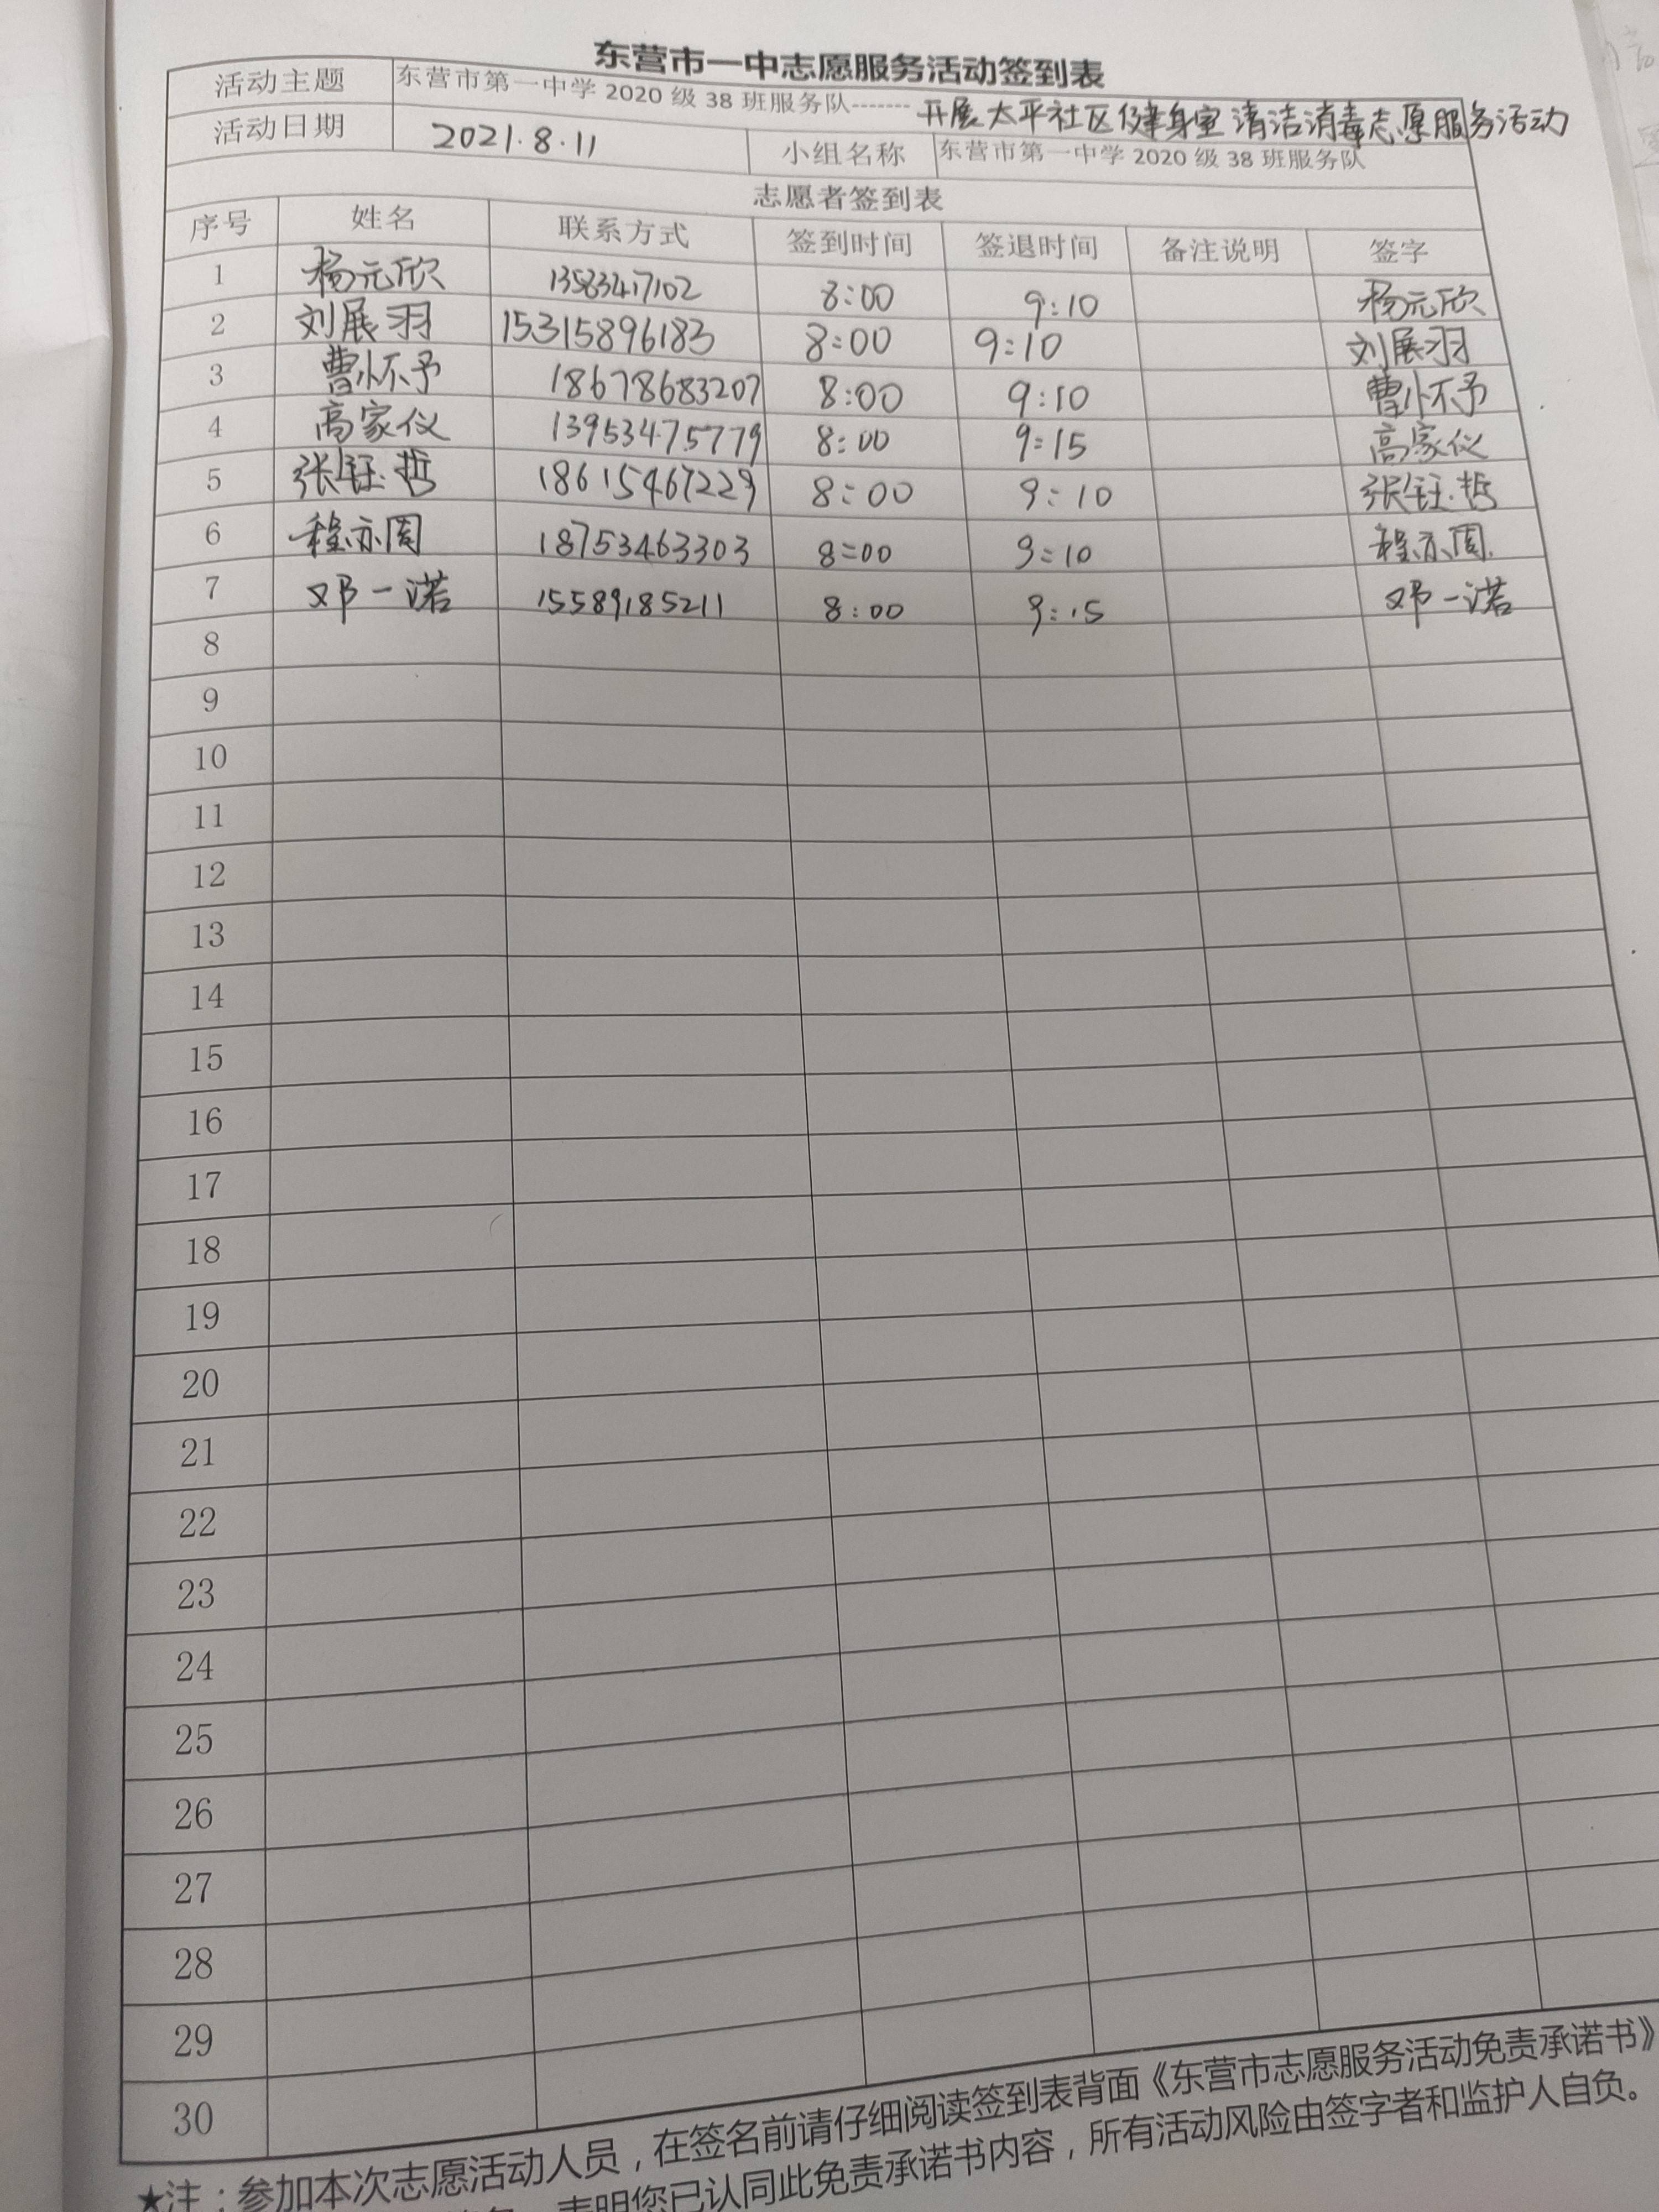 东营市一中志愿服务活动签到表
活动主题 东营市第一中学 2020 级 38 班服务队------- 开展太平社区健身室清洁消毒志愿服务活动
活动日期 2021.8.11 小组名称 东营市第一中学 2020 级 38 班服务队
志愿者签到表
序号 姓名 联系方式 签到时间 签退时间 备注说明 签字
1 杨元欣 13583417102 8:00 9:10 杨元欣
2 刘展羽 15315896183 8:00 9:10 刘展羽
3 曹怀予 18678683207 8:00 9:10 曹怀予
4 高家仪 13953475779 8:00 9:15 高家仪
5 张钰哲 18615467229 8:00 9:10 张钰哲
6 程亦周 18753463303 8:00 9:10 程亦周
7 邓一诺 15589185211 8:00 9:15 邓一诺
8
9
10
11
12
13
14
15
16
17
18
19
20
21
22
23
24
25
26
27
28
29
30
★注：参加本次志愿活动人员，在签名前请仔细阅读签到表背面《东营市志愿服务活动免责承诺书》
表明您已认同此免责承诺书内容，所有活动风险由签字者和监护人自负。